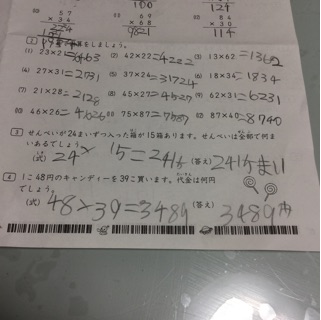 57 69 84
×34 ×68 ×30
100 124
9821 114
2 をしましょう。
(2) 42×22= (3) 13×62=
(4) 27×31=2731 (5) 37×24=31724 (6) 18×34=1834
(7) 21×28=2128 (8) 45×27=4527 (9) 62×31=6231
(10) 46×26= (11) 75×87= (12) 87×40=8740
3 せんべいが24まいずつ入った箱が15箱あります。せんべいは全部で何ま
いあるでしょう。
(式) 24× 15= (答え) まい
4 1こ48円のキャンディーを39こ買います。代金は何円
でしょう。
(式) 48×39=3489 (答え) 3489円